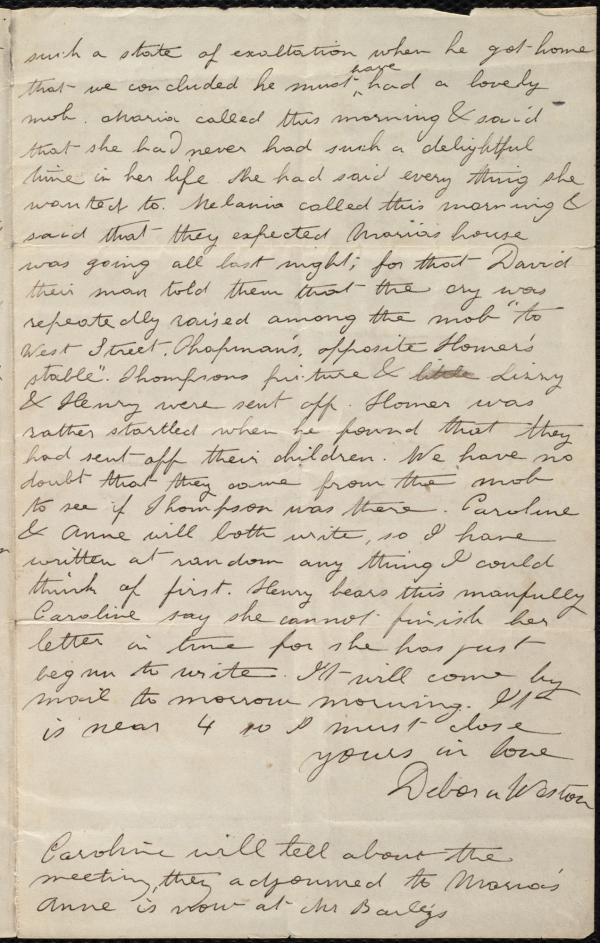 such a state of exaltation when he got home
that we concluded he must have had a lovely
mob. Maria called this morning & said
that she had never had such a delightful
time in her life she had said every thing she
wanted to. Melania called this morning &
said that they expected Maria's house
was going all last night; for that David
their man told them that the cry was
repeatedly raised among the mob "to
West Street, Chapman's, opposite Homer's
stable". Thompsons picture & little Lizzy
& Henry were sent off. Homer was
rather startled when he found that they
had sent off their children. We have no
doubt that they came from the mob
to see if Thompson was there. Caroline
& Anne will both write, so I have
written at random any thing I could
think of first. Henry bears this manfully
Caroline say she cannot finish her
letter in time for she has just
begun to write. It will come by
mail to morrow morning. It
is near 4 so I must close
yours in love
Debora Weston
Caroline will tell about the
meeting, they adjourned to Maria's
Anne is now at Mr Bailey's